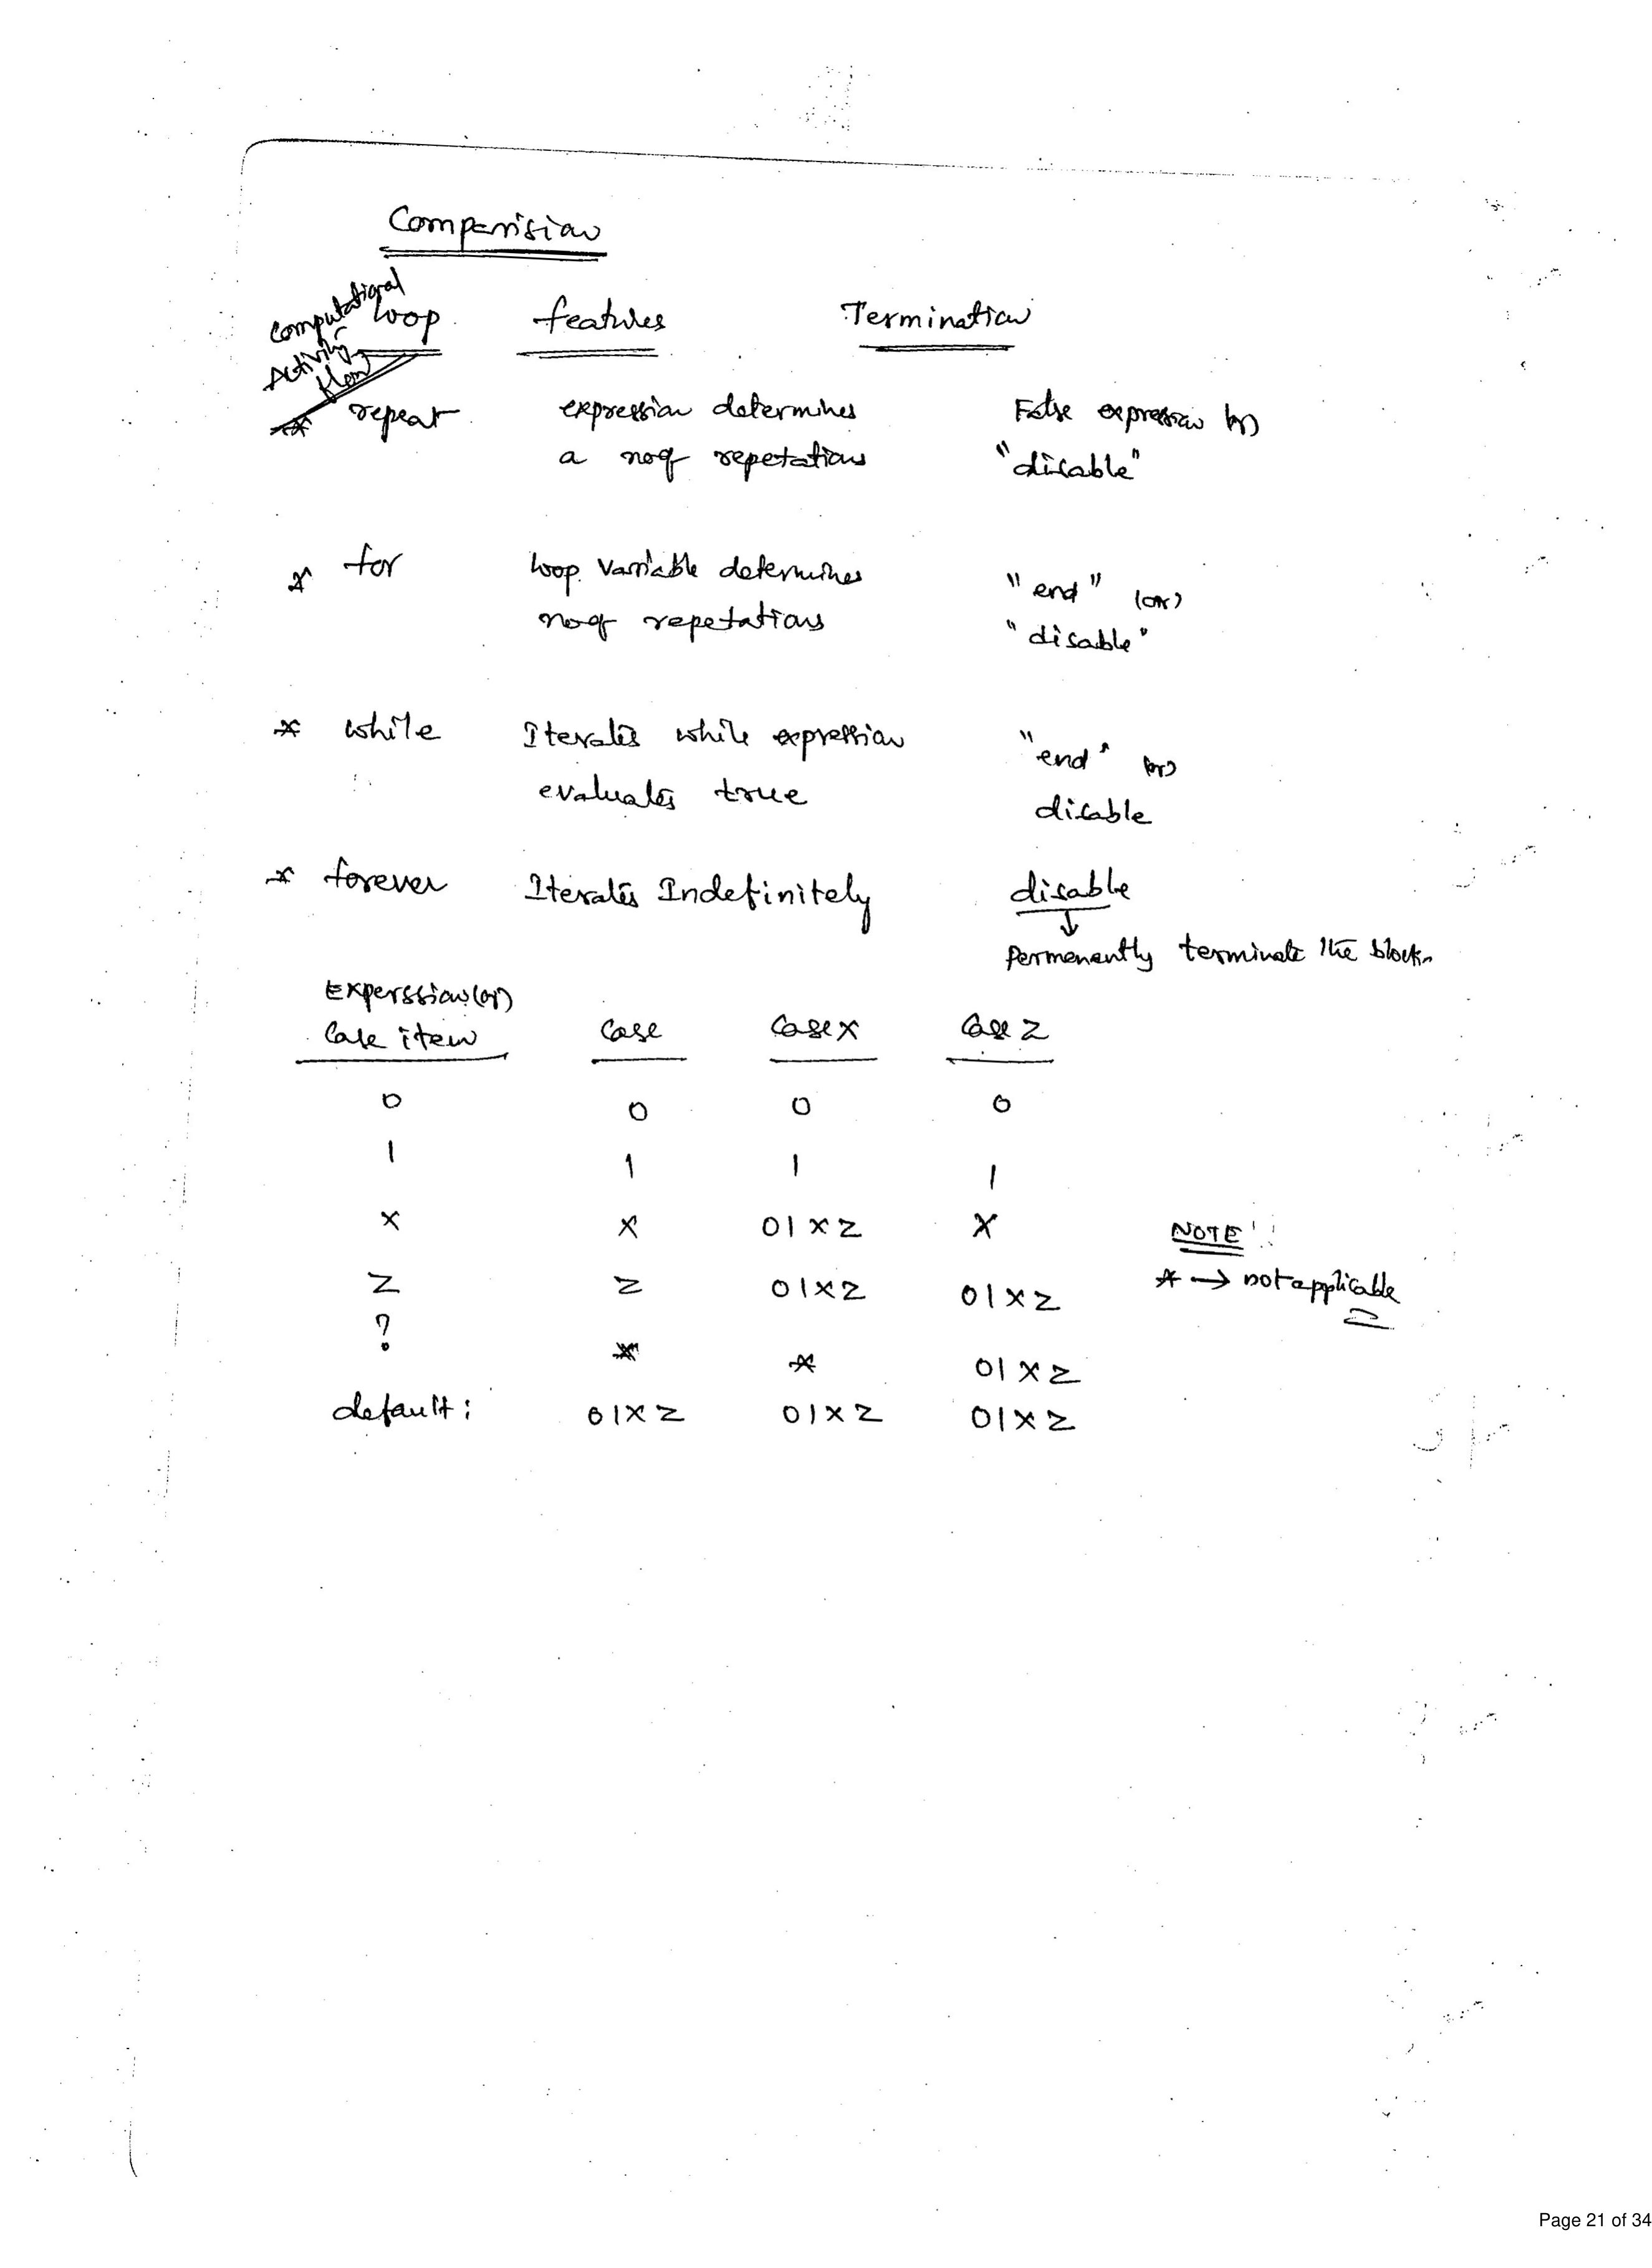 Comparision
Computational
Activity
flow
loop features Termination
* repeat expression determines False expression (or)
a no of repetations "disable"
* for loop variable determines "end" (or)
no of repetations "disable"
* while Iterates while expression "end" (or)
evaluates true disable
* forever Iterates Indefinitely disable
↓
Permenantly terminate the block.
Experssion (or)
Case item Case Casex Case z
0 0 0 0
1 1 1 1
x x 01xz x
z z 01xz 01xz
? * * 01xz
default: 01xz 01xz 01xz
NOTE:
* → not applicable
Page 21 of 34